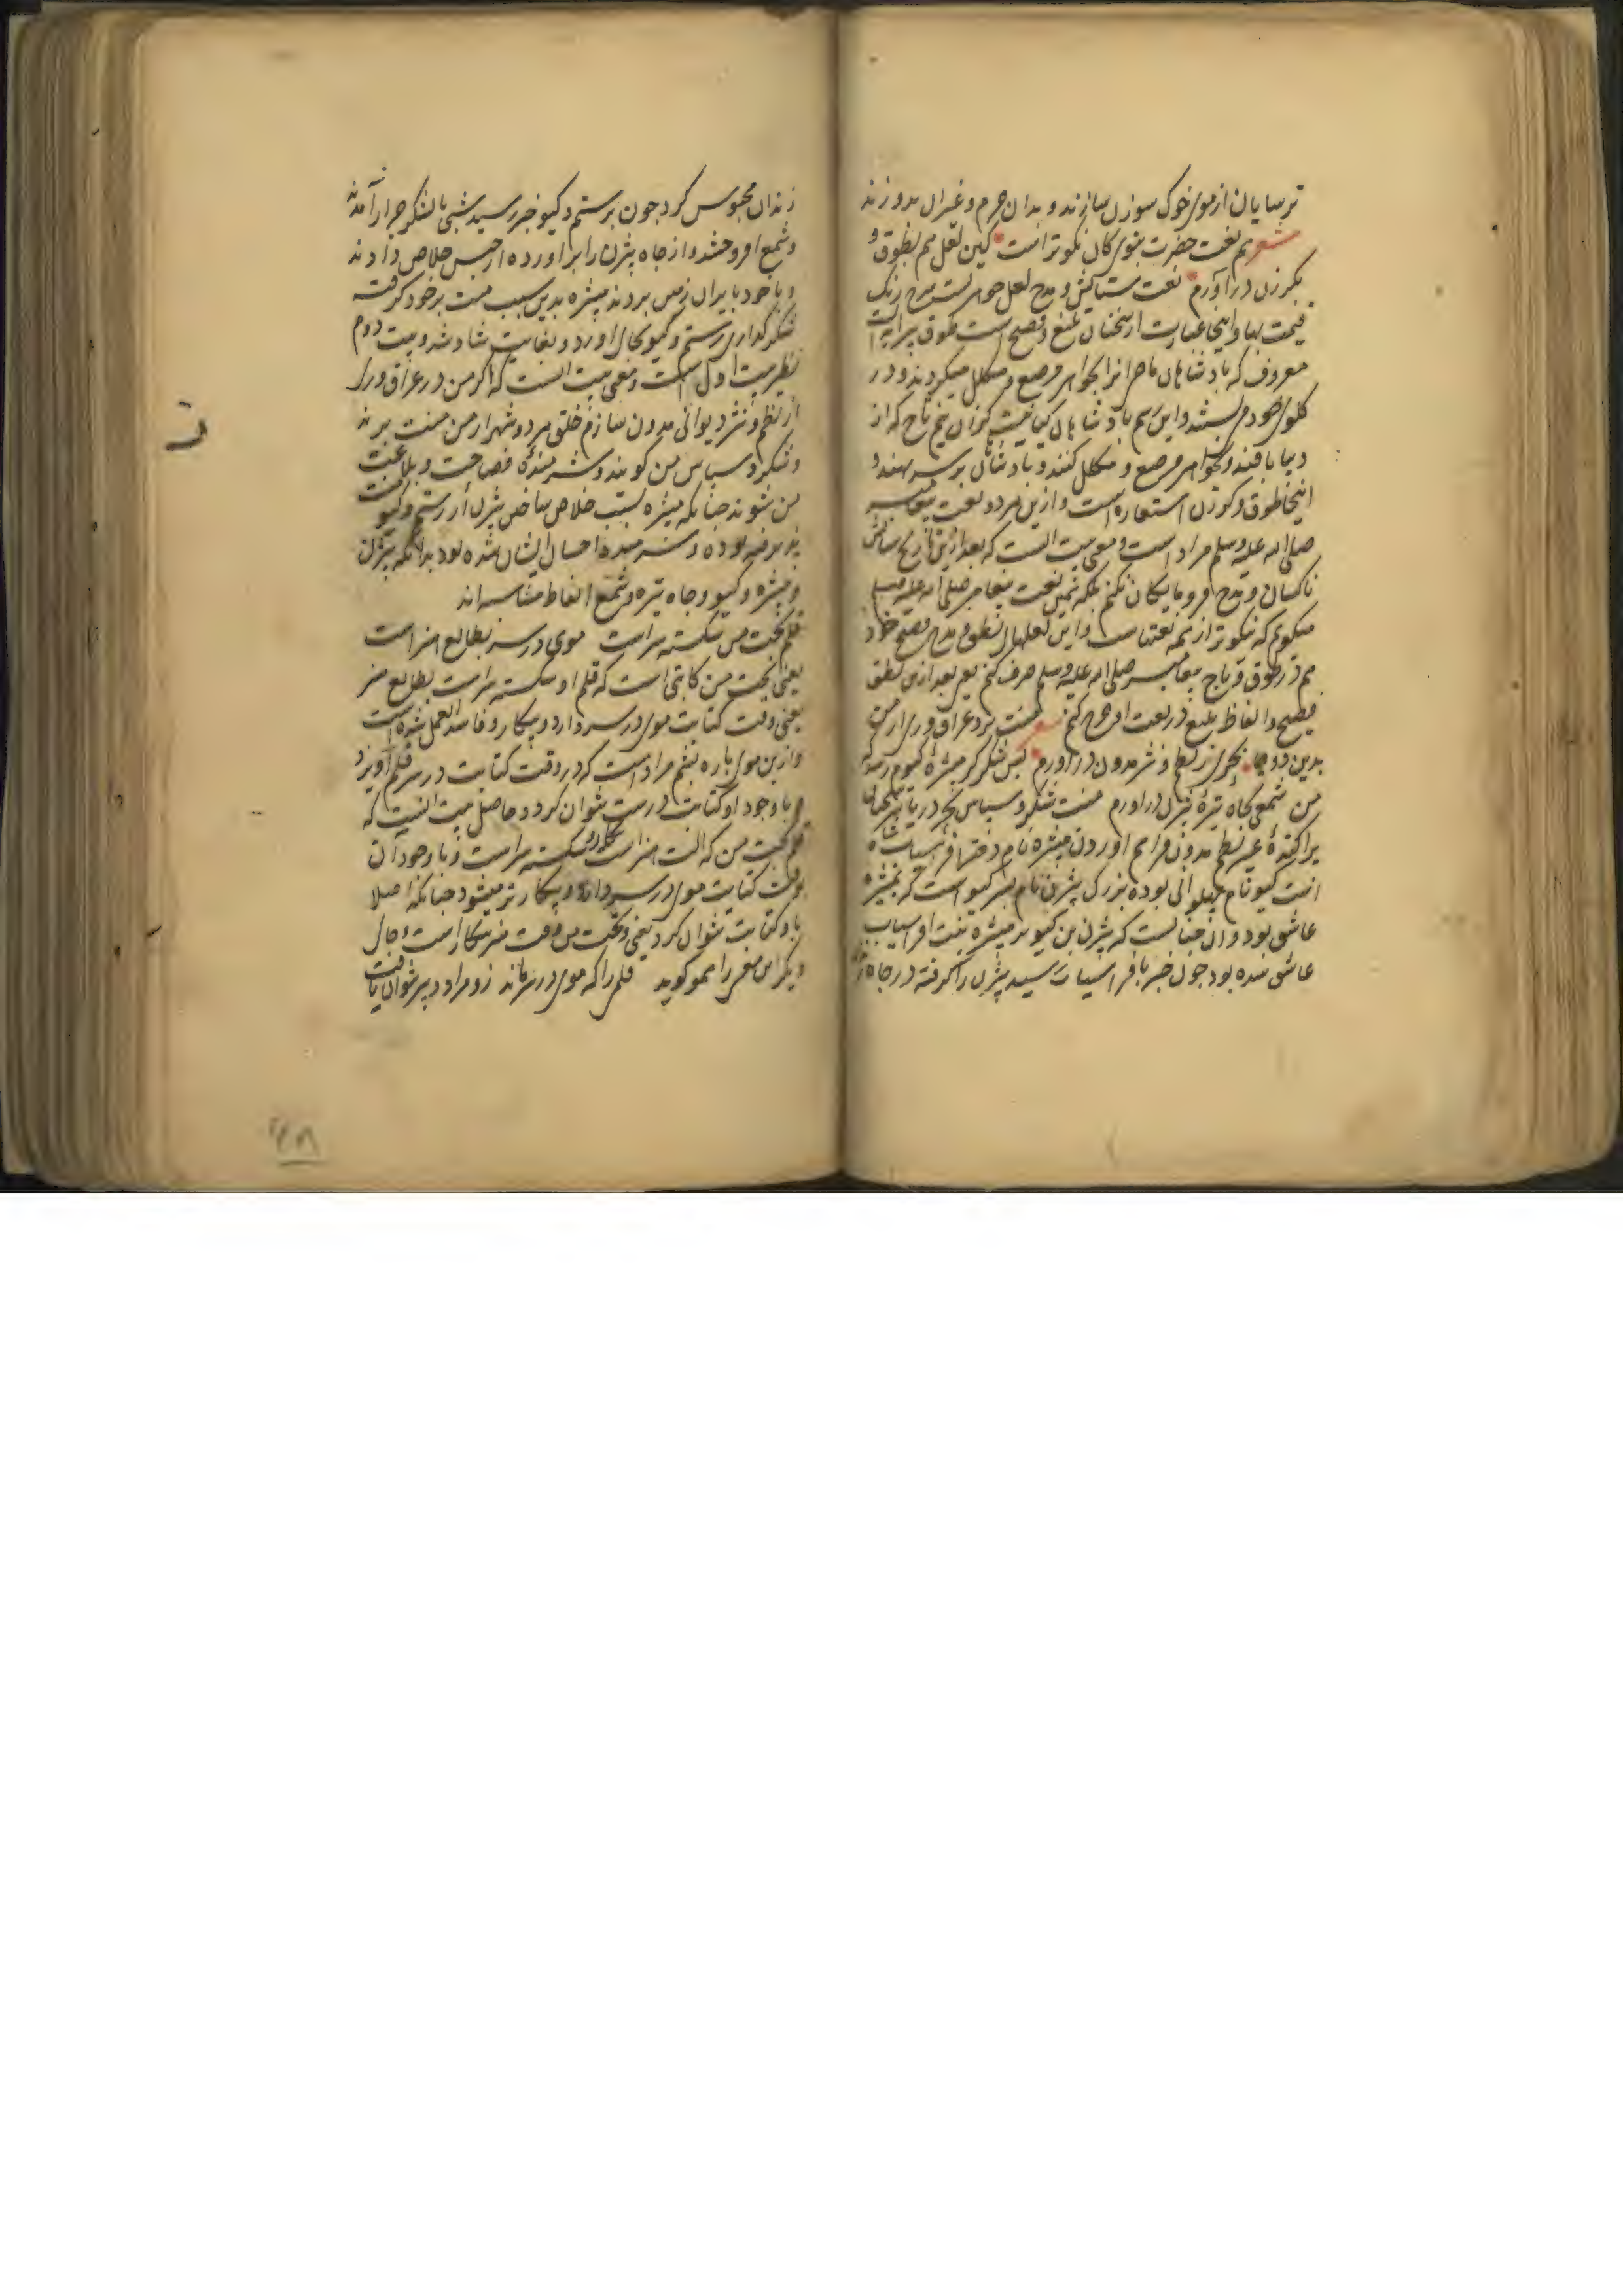 ترسایان از موی خوک سوزن سازند و بدان چرم و غیر آن بدوزند
شعر هم نعت حضرت نبوی کان نکوتر است کین لعل هم بطوق و
بکرزن درآورم نعت ستایش و مدح لعل جوهریست سرخ رنگ
قیمت بها و اینجا عبارت از سخنان بلیغ و فصیح است طوق پیرایه ایست
معروف که بادشاهان ما آنرا بجواهر مرصع و مکلل میکردند و در
کلوی خود می بستند و این رسم بادشاهان کیانیست کرزن نیم تاج که از
دیبا بافند و بجواهر مرصع و مکلل کنند و بادشاهان بر سر نهند و
اینجا طوق و کرزن استعاره است و ازین هر دو نعت پیغامبر
صلی الله علیه وسلم مراد است و معنی بیت آنست که بعد ازین تاریخ ستایش
ناکسان و مدح فرومایکان نکنم بلکه همین نعت پیغامبر صلی الله علیه وسلم
میکویم که نیکوتر از همه نعتهاست و این لعلهای نطق و مدح فصیح خود
هم در طوق و تاج پیغامبر صلی الله علیه وسلم صرف کنم یعنی بعد ازین نطق
فصیح و الفاظ بلیغ در نعت او خرج کنم شعر منت برد عراق و ری از من
بدین دو جا بحری ز نظم و نثر مدون درآورم بس شکر کز منیژه کیوم رسد که
من شمعی بچاه تیرهٔ بیژن درآورم منت شکر و سپاس بحر دریا
پراکندهٔ غیر نظم مدون فراهم آوردن منیژه نام دختر افراسیاب شاه
است کیو نام پهلوانی بوده بزرک بیژن نام پسر کیو است که بمنیژه
عاشق بود و آن چنانست که بیژن بن کیو بر منیژه بنت افراسیاب
عاشق شده بود چون خبر بافراسیاب رسید بیژن را کرفته در چاه
زندان محبوس کرد چون برستم و کیو خبر رسید شبی با لشکر جرار آمدند
و شمع افروختند و از چاه بیژن را برآورده از حبس خلاص دادند
و با خود بایران زمین بردند منیژه بدین سبب منت بر خود کرفته
شکرکذاری رستم و کیو بجای آورد و بغایت شاد شد و بیت دوم
نظیر بیت اول است و معنی بیت آنست که اکر من در عراق و ری
از نظم و نثر دیوانی مدون سازم خلق هر دو شهر از من منت برند
و شکر و سپاس من کویند و شرمندهٔ فصاحت و بلاغت
من شوند چنانکه منیژه بسبب خلاص ساختن بیژن از رستم و کیو منت
پذیرفته بوده و شرمندهٔ احسان ایشان شده بود بدانکه بیژن
و منیژه و کیو و چاه تیره و شمع الفاظ متناسبه اند
قلم بخت من شکسته سر است موی در سر بطالع هنر است
یعنی بخت من کاتبی است که قلم او شکسته سر است بطالع هنر
یعنی وقت کتابت موی در سر دارد و بیکار و فاسد العمل شده است
و ازین موی پاره پشم مراد است که در وقت کتابت در سر قلم آویزد
و با وجود او کتابت درست نتوان کرد و حاصل بیت اینست که
قلم بخت من که آلت هنر است شکسته سر است و با وجود آن
بوقت کتابت موی در سر دارد و بیکارتر میشود چنانکه اصلا
با و کتابت نتوان کرد یعنی بخت من وقت هنر بیکار است و جای
دیکر این معنی را هم کوید قلم را که موی در سر ماند زو مراد دبیر نتوان یافت